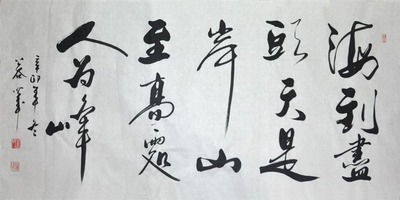 海到盡
頭天是
岸山
至高處
人为峰
辛卯年冬